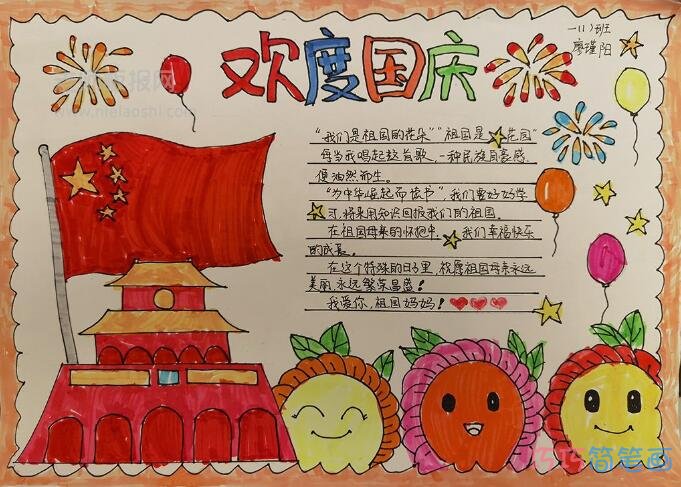 欢度国庆
一(1)班
廖瑾阳
"我们是祖国的花朵""祖国是 花园"
每当我唱起这首歌,一种民族自豪感
便油然而生。
"为中华崛起而读书",我们要好好学
习,将来用知识回报我们的祖国。
在祖国母亲的怀抱中, 我们幸福快乐
的成长。
在这个特殊的日子里,祝愿祖国母亲永远
美丽,永远繁荣昌盛!
我爱你,祖国妈妈!
简笔画